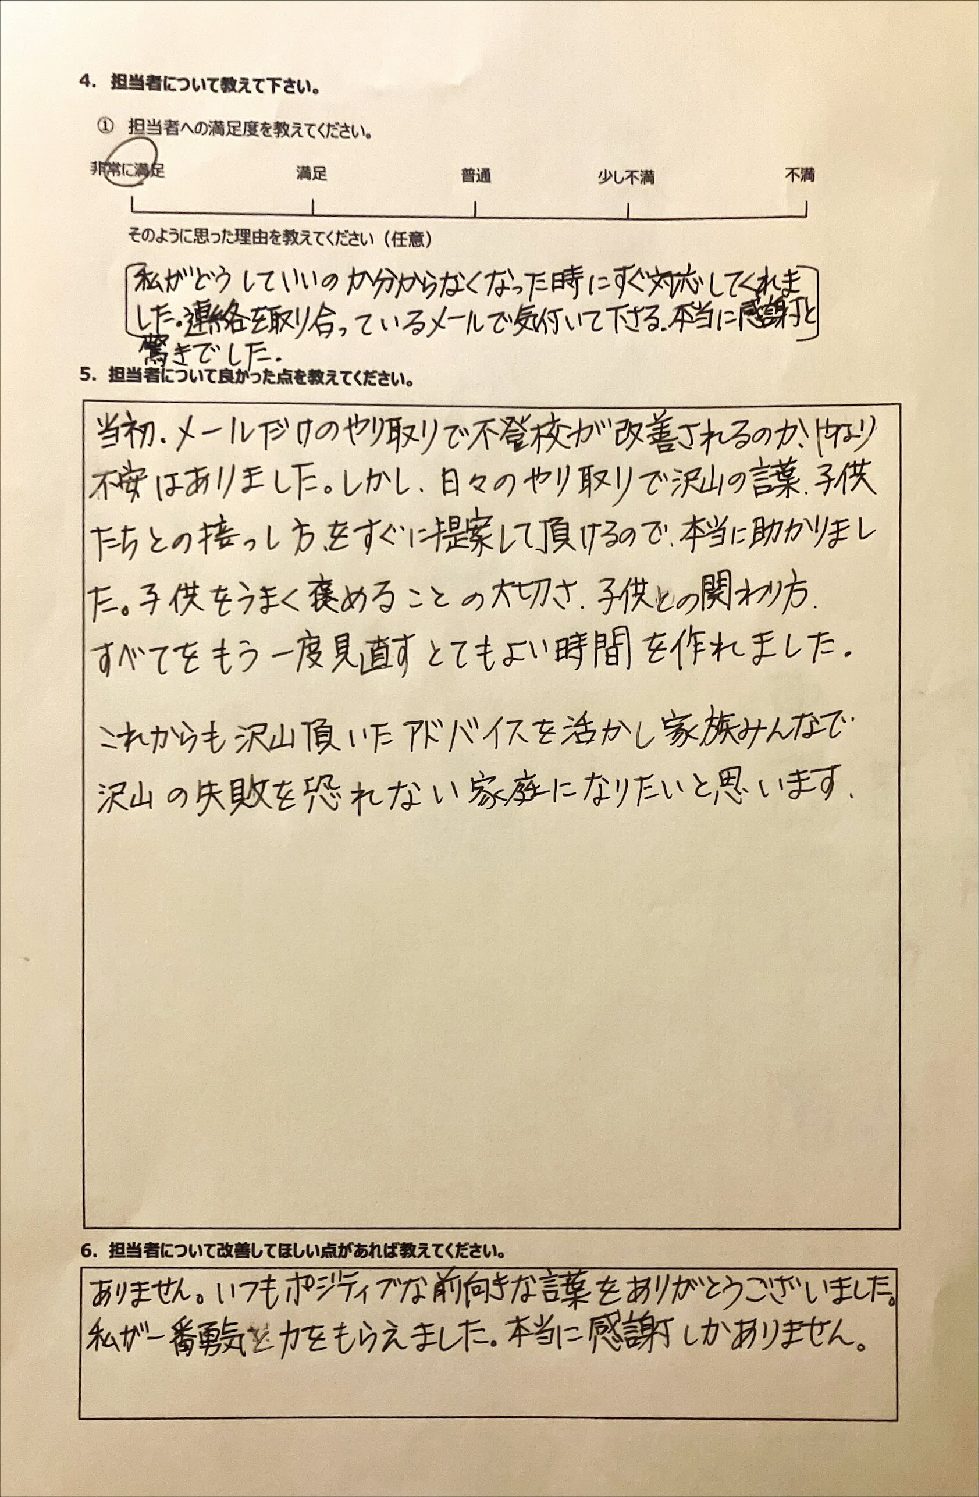 4. 担当者について教えて下さい。
① 担当者への満足度を教えてください。
非常に満足 満足 普通 少し不満 不満
そのように思った理由を教えてください（任意）
私がどうしていいのか分からなくなった時にすぐ対応してくれま
した。連絡を取り合っているメールで気付いて下さる。本当に感謝と
驚きでした。
5. 担当者について良かった点を教えてください。
当初、メールだけのやり取りで不登校が改善されるのか、やはり
不安はありました。しかし、日々のやり取りで沢山の言葉、子供
たちとの接っし方、をすぐに提案して頂けるので、本当に助かりまし
た。子供をうまく褒めることの大切さ、子供との関わり方、
すべてをもう一度見直すとてもよい時間を作れました。
これからも沢山頂いたアドバイスを活かし家族みんなで
沢山の失敗を恐れない家庭になりたいと思います。
6. 担当者について改善してほしい点があれば教えてください。
ありません。いつもポジティブな前向きな言葉をありがとうございました。
私が一番勇気と力をもらえました。本当に感謝しかありません。